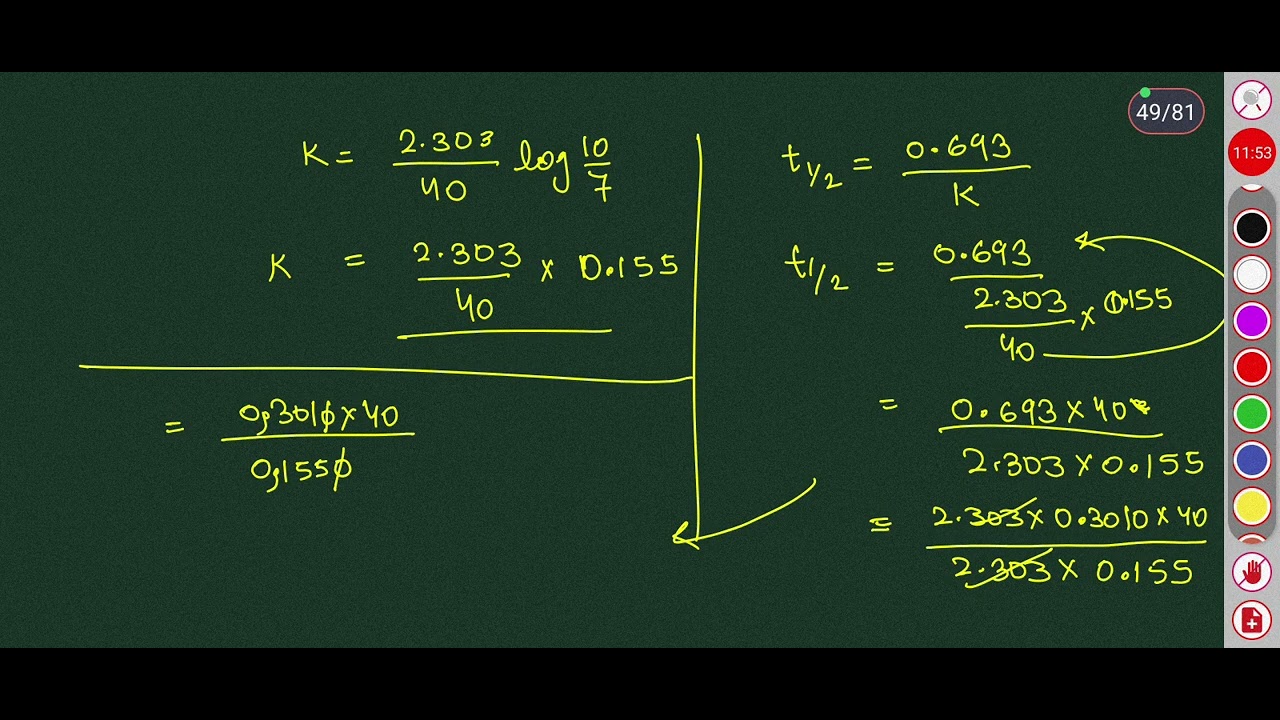 49/81
11:53
K = 2.303/40 log 10/7
K = 2.303/40 × 0.155
= 0,3010×40/0,1550
t1/2 = 0.693/K
t1/2 = 0.693/(2.303/40 × 0.155)
= 0.693×40/2.303×0.155
= 2.303×0.3010×40/2.303×0.155